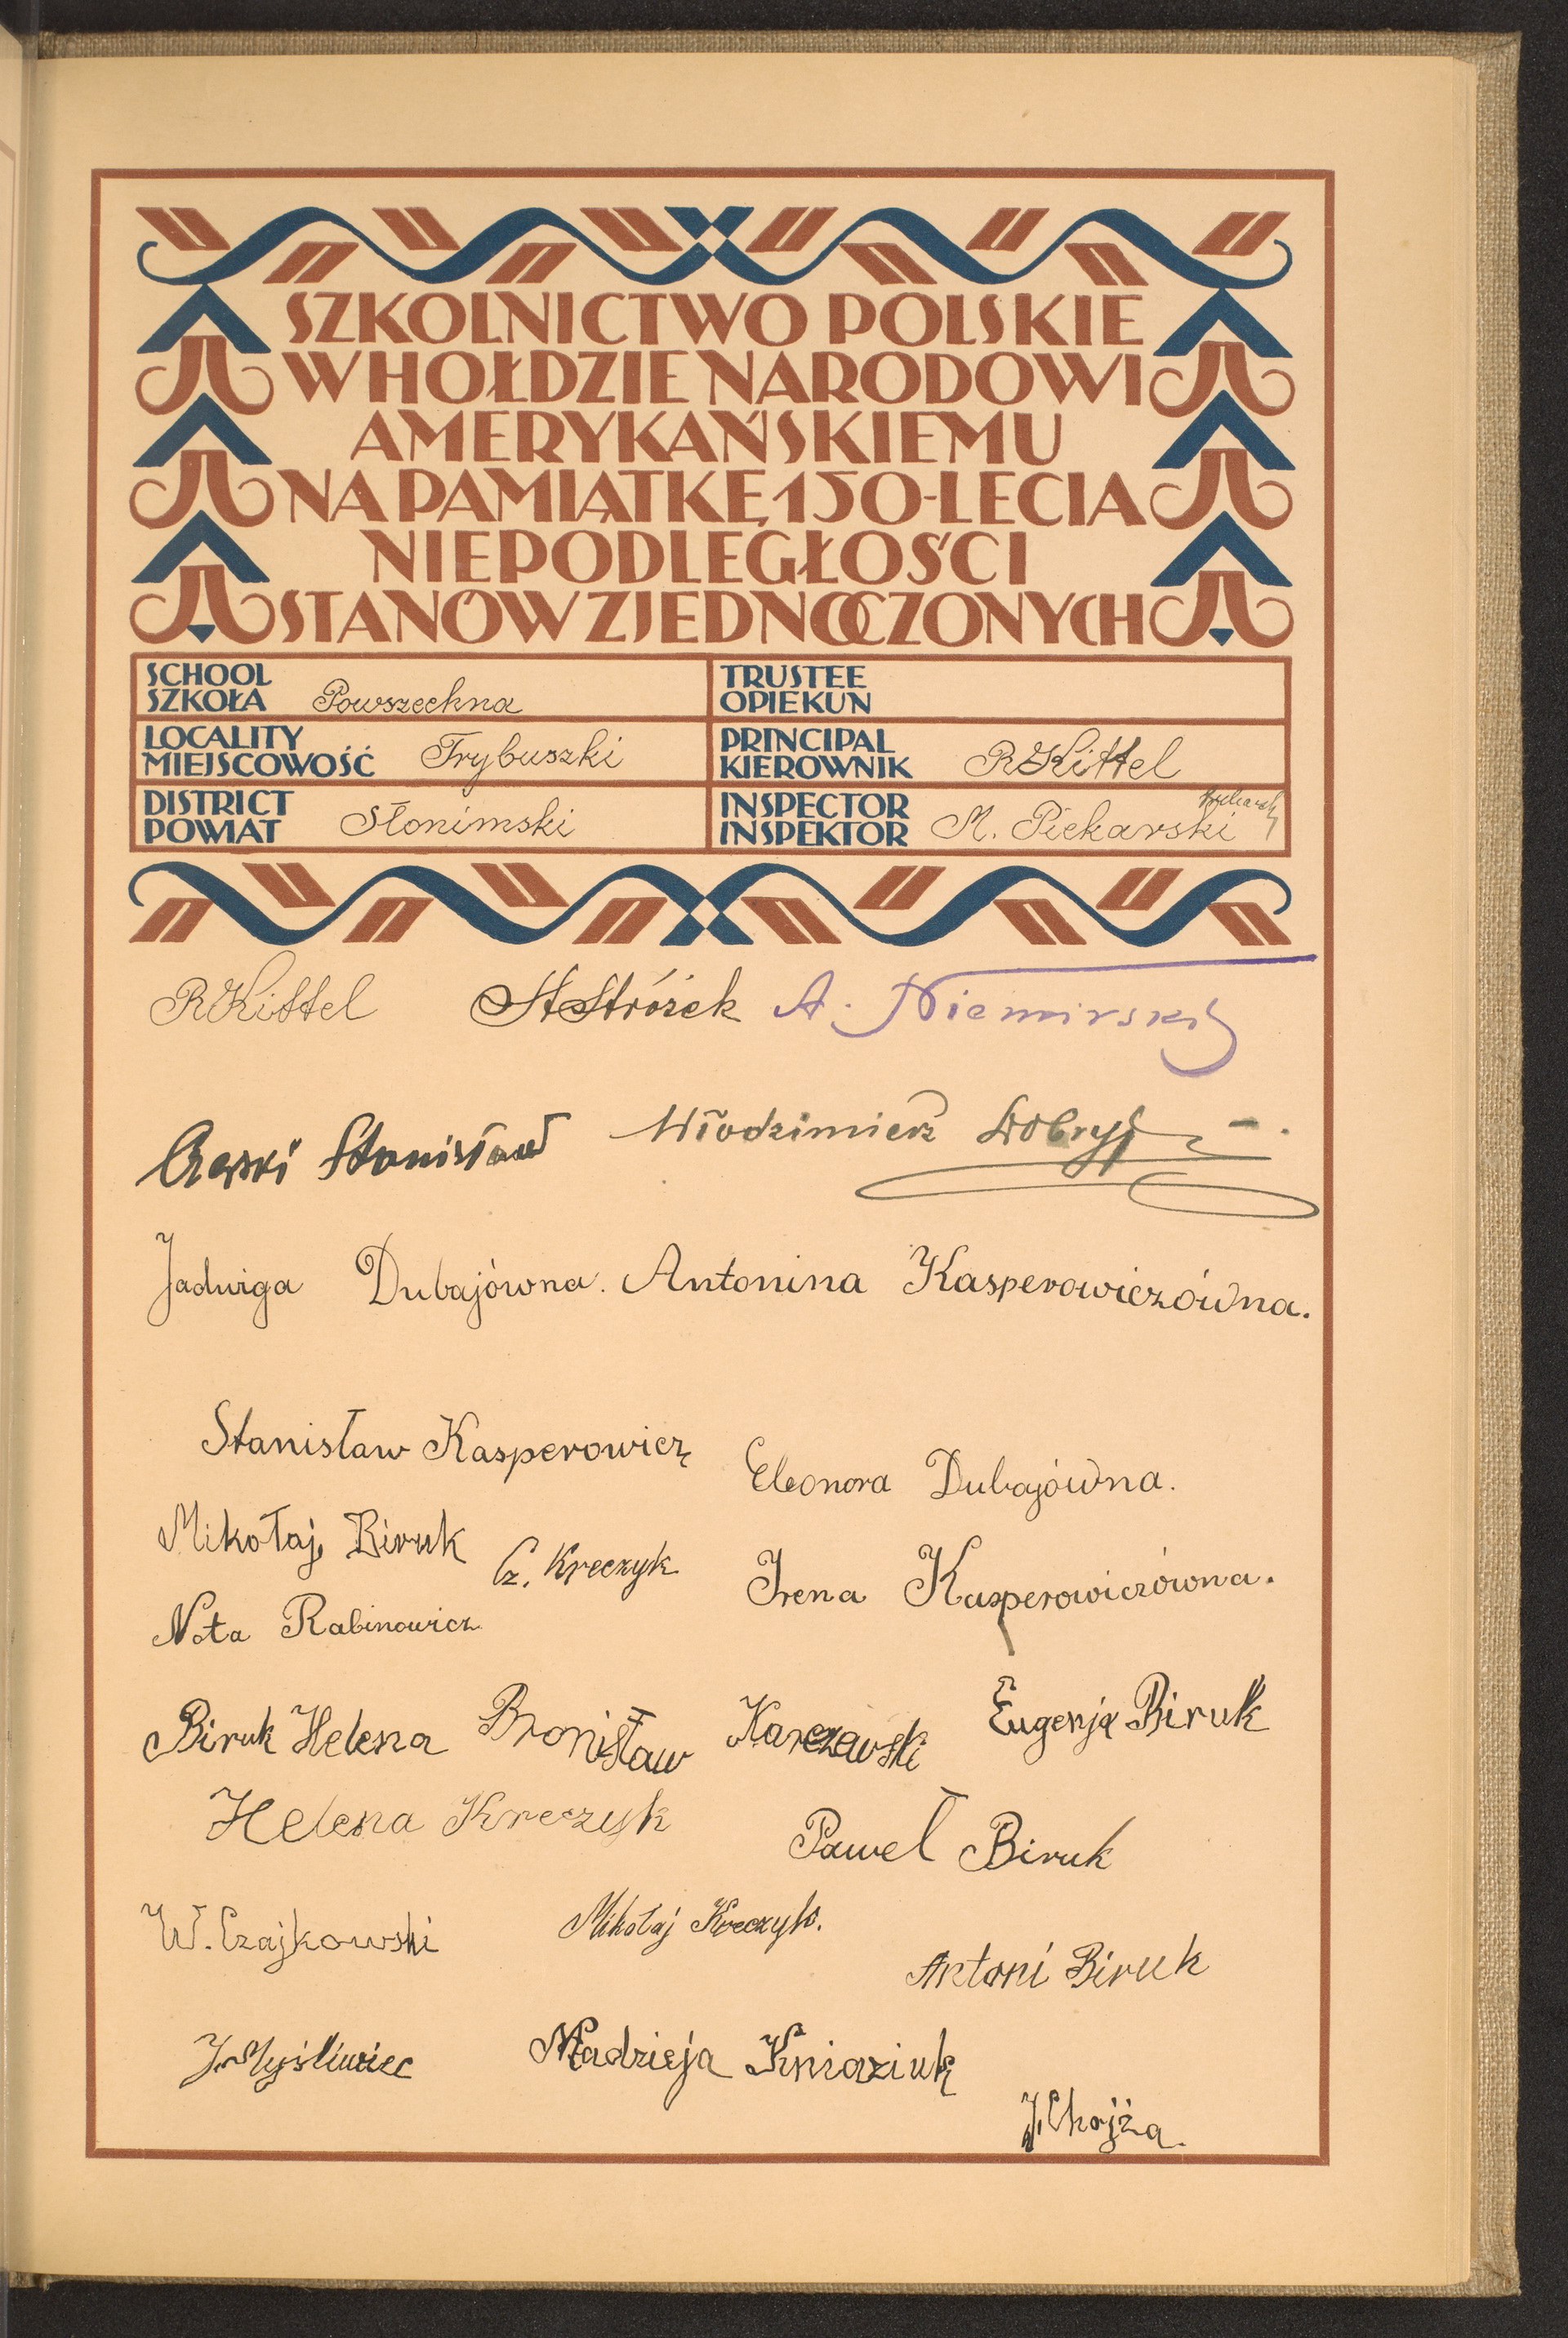 SZKOLNICTWO POLSKIE
W HOŁDZIE NARODOWI
AMERYKAŃSKIEMU
NA PAMIĄTKĘ 150-LECIA
NIEPODLEGŁOŚCI
STANÓW ZJEDNOCZONYCH
SCHOOL
SZKOŁA Powszechna
TRUSTEE
OPIEKUN
LOCALITY
MIEJSCOWOŚĆ Trybuszki
PRINCIPAL
KIEROWNIK RKittel
DISTRICT
POWIAT Słonimski
INSPECTOR
INSPEKTOR M. Piekarski
RKittel StStróżek A. Niemirski
Stanisław Włodzimierz
Jadwiga Dubajówna. Antonina Kasperowiczówna.
Stanisław Kasperowicz
Eleonora Dubajówna.
Mikołaj Biruk Cz. Kreczyk
Irena Kasperowiczówna.
Nota Rabinowicz
Biruk Helena Bronisław Karczewski Eugenja Biruk
Helena Kreczyk
Paweł Biruk
W. Czajkowski Mikołaj Kreczyk.
Antoni Biruk
J. Myśliwiec Nadzieja Kniaziuk